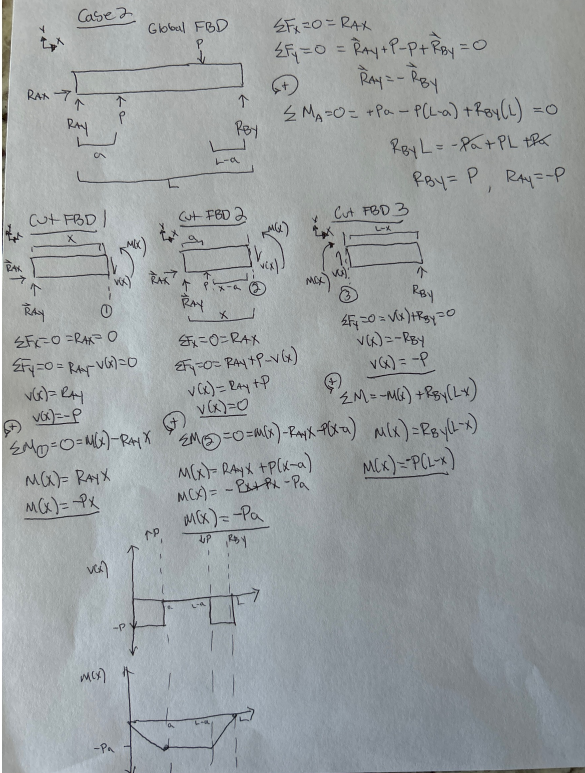 Case 2
Global FBD
Y
X
P
RAX
RAY
P
RBY
a
L-a
L
ΣFx=0=RAX
ΣFy=0 = RAY+P-P+RBY=0
RAY=-RBY
+
ΣMA=0=+Pa-P(L-a)+RBY(L)=0
RBYL=-Pa+PL+Pa
RBY=P, RAY=-P
Cut FBD 1
Y
X
x
M(x)
RAX
V(x)
RAY
1
ΣFx=0=RAX=0
ΣFy=0=RAY-V(x)=0
V(x)=RAY
V(x)=-P
+
ΣM1=0=M(x)-RAYX
M(x)=RAYX
M(x)=-Px
Cut FBD 2
Y
X
a
M(x)
RAX
P
V(x)
x-a
2
RAY
x
ΣFx=0=RAX
ΣFy=0=RAY+P-V(x)
V(x)=RAY+P
V(x)=0
+
ΣM2=0=M(x)-RAYX-P(x-a)
M(x)=RAYX+P(x-a)
M(x)=-Px+Px-Pa
M(x)=-Pa
Cut FBD 3
Y
X
L-x
M(x)
V(x)
3
RBY
ΣFy=0=V(x)+RBY=0
V(x)=-RBY
V(x)=-P
+
ΣM=-M(x)+RBY(L-x)
M(x)=RBY(L-x)
M(x)=-P(L-x)
↑P
↓P
RBY
V(x)
a
L-a
L
-P
M(x)
a
L-a
L
-Pa